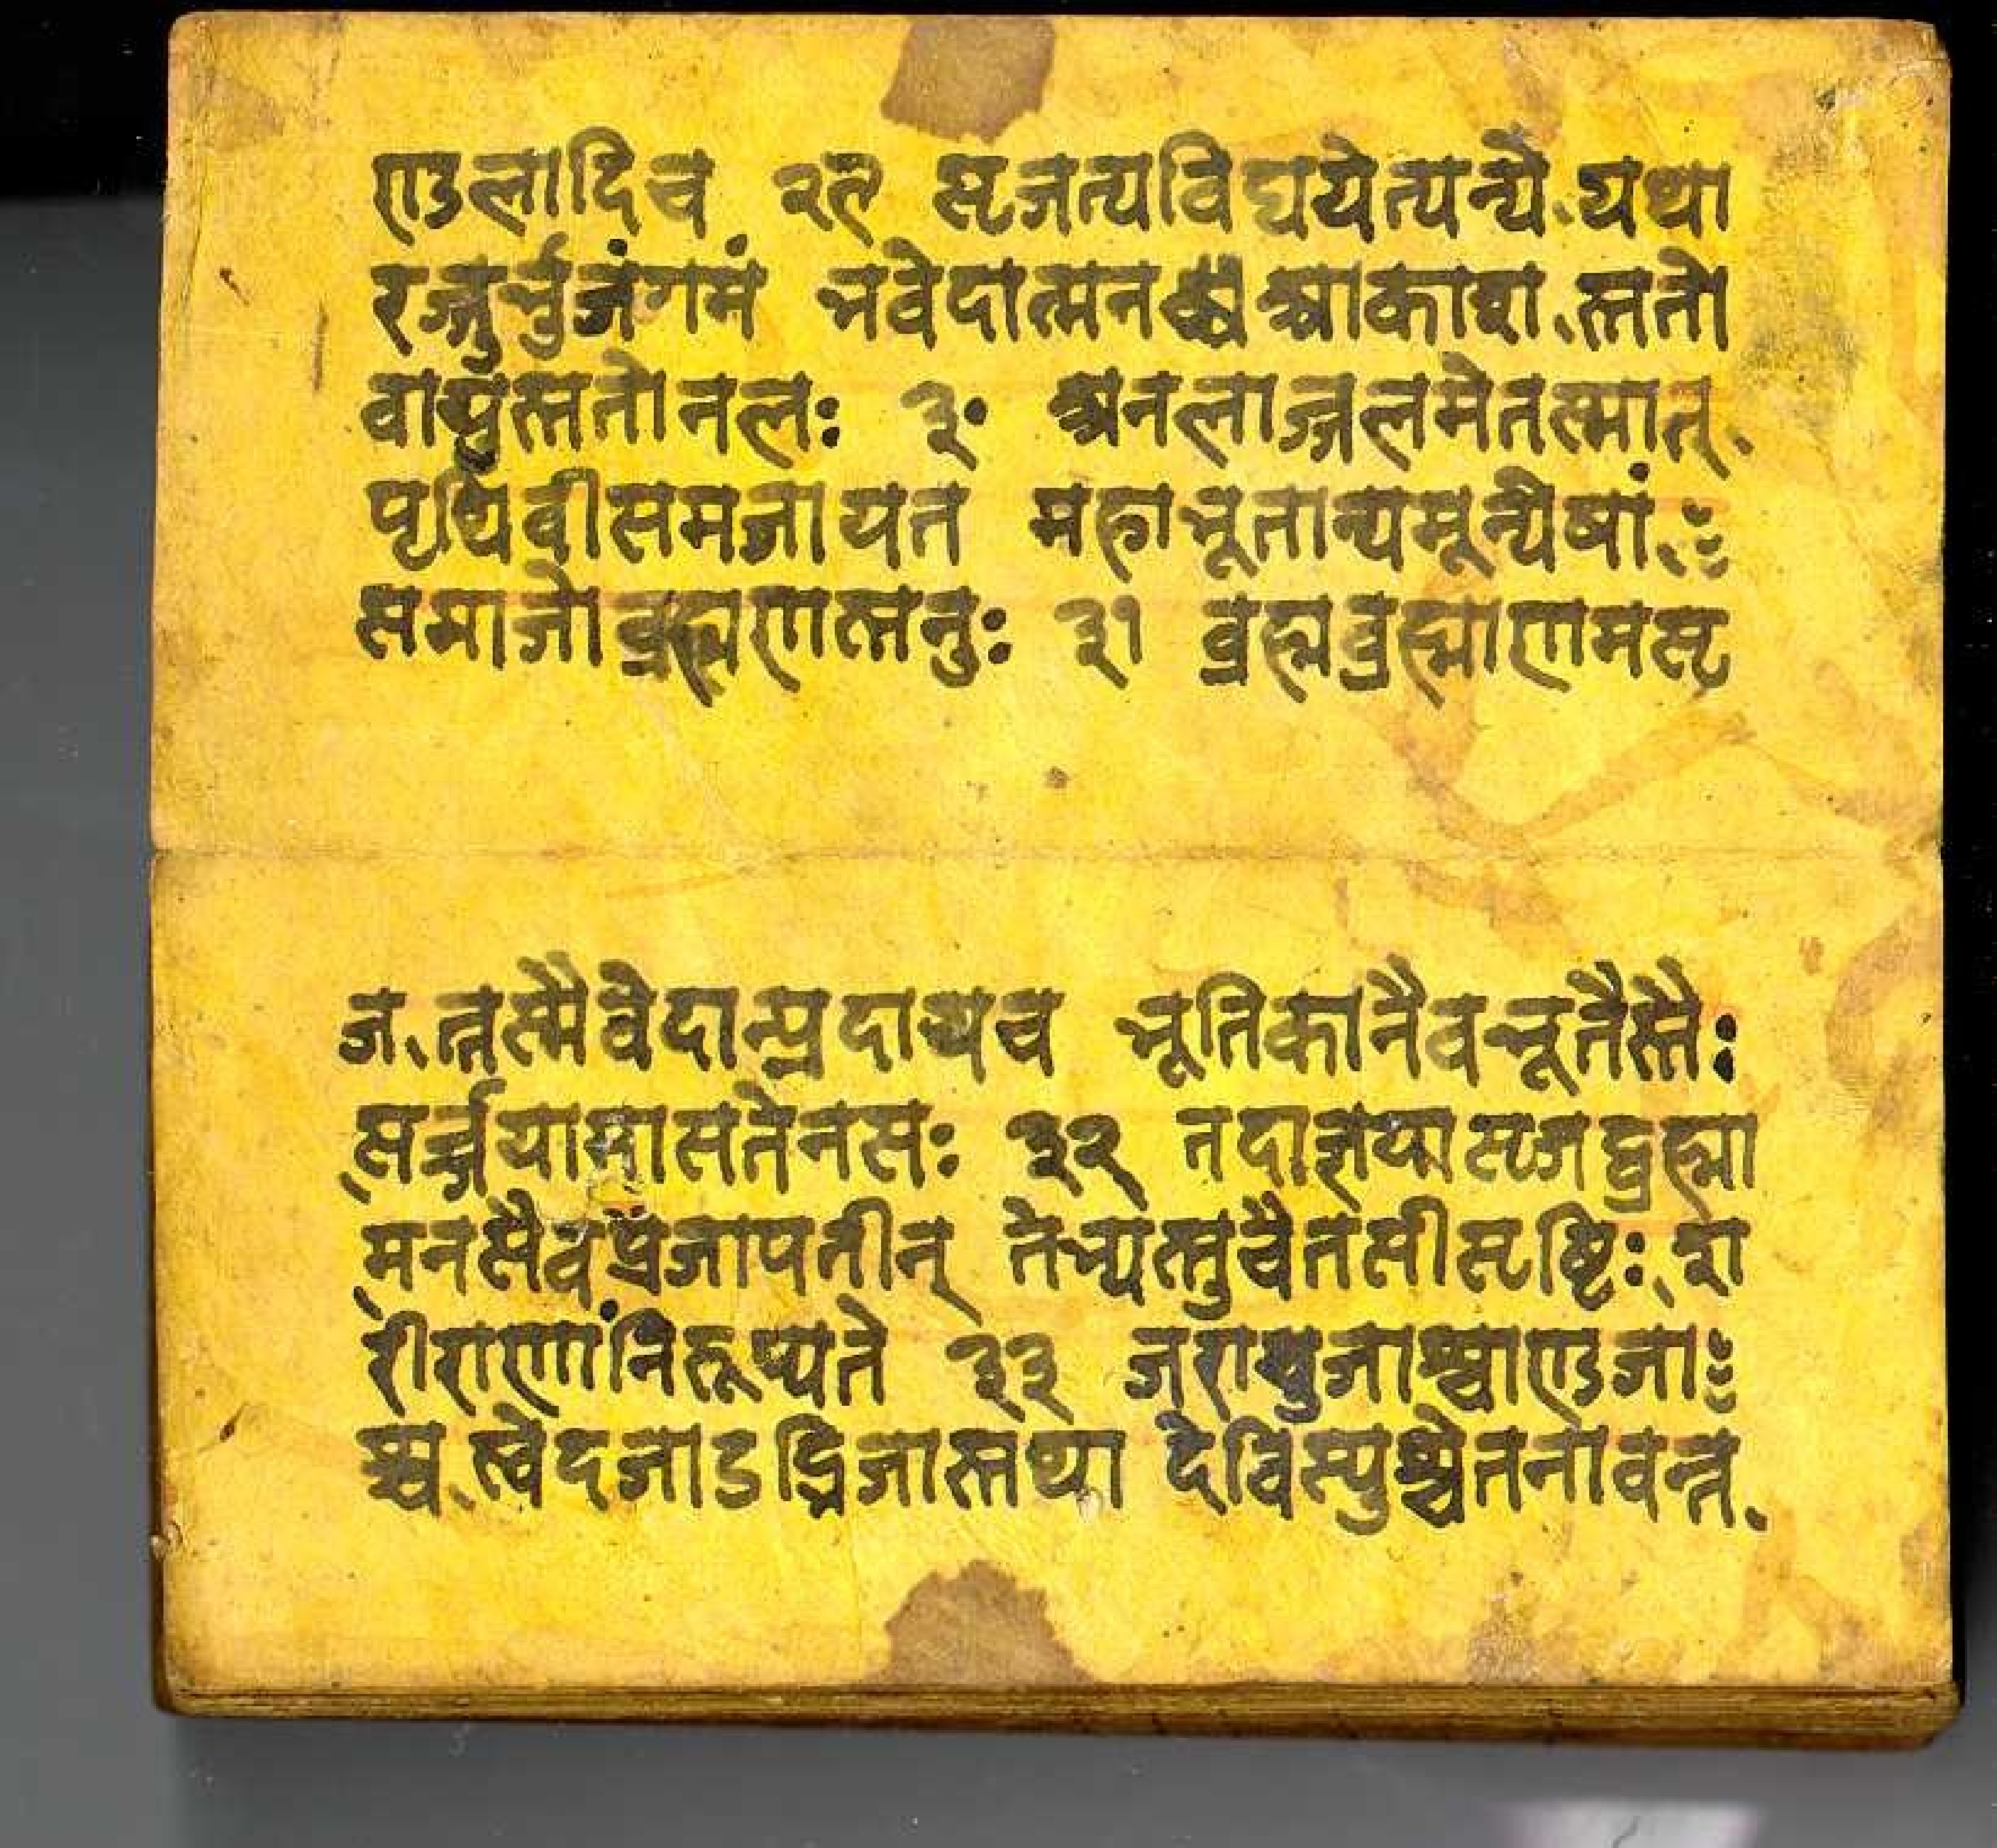 ण्डलादिच २९ सृजत्यविद्ययेत्यन्यै यथा
रज्जुर्भुजंगमं भवेदात्मनश्च आकाश स्ततो
वायुस्ततोनलः ३० अनलाज्जलमेतस्मात्
पृथिवीसमजायत महाभूतान्यमून्यैषां
समाजोब्रह्मणस्तनुः ३१ ब्रह्मब्रह्माणमसृ
ज त्तस्मैवेदान्प्रदायच भूतिकानैवभूतैस्तैः
सर्ज्जयामासतेनसः ३२ तदाज्ञयासृजद्ब्रह्मा
मनसैवप्रजापतीन् तेभ्यस्तुचैतसीसृष्टिः श
रीराणांनिरूप्यते ३३ जरायुजाश्चाण्डजाः
श्च स्वेदजाउद्भिजास्तथा देविस्युश्चेतनावन्त